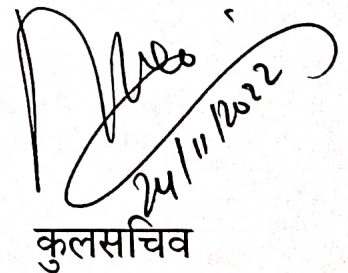 24/11/2022
कुलसचिव